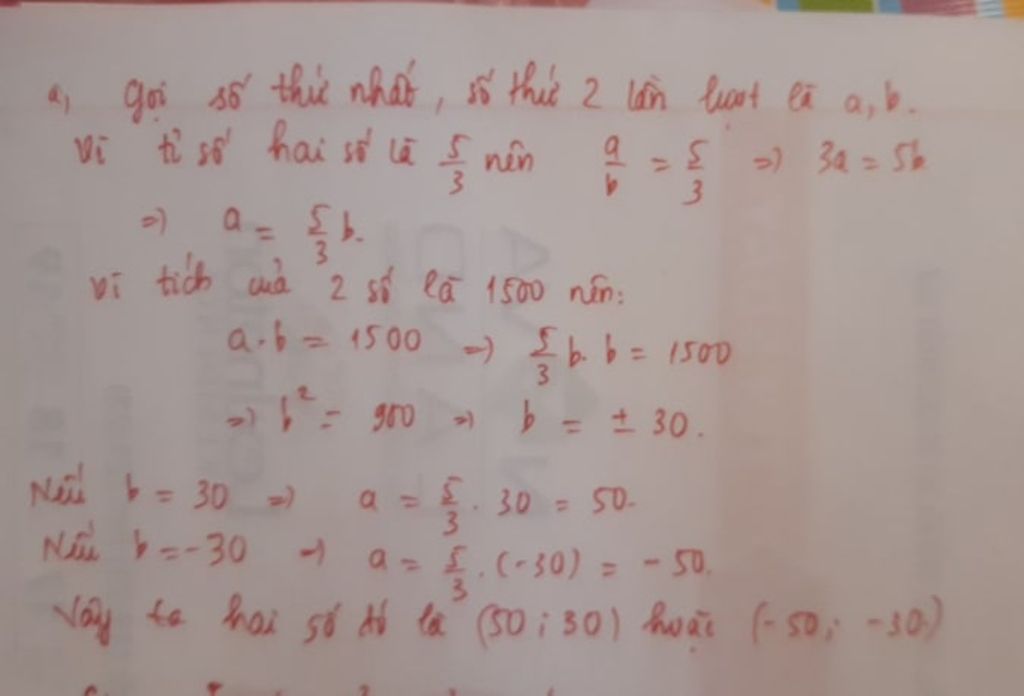 a, Gọi số thứ nhất, số thứ 2 lần lượt là a, b.
Vì tỉ số hai số là 5/3 nên a/b = 5/3 => 3a = 5b
=> a = 5/3 b.
Vì tích của 2 số là 1500 nên:
a.b = 1500 => 5/3 b. b = 1500
=> b² = 900 => b = ± 30.
Nếu b = 30 => a = 5/3 . 30 = 50.
Nếu b = -30 => a = 5/3 . (-30) = -50.
Vậy ta hai số đó là (50 ; 30) hoặc (-50 ; -30)